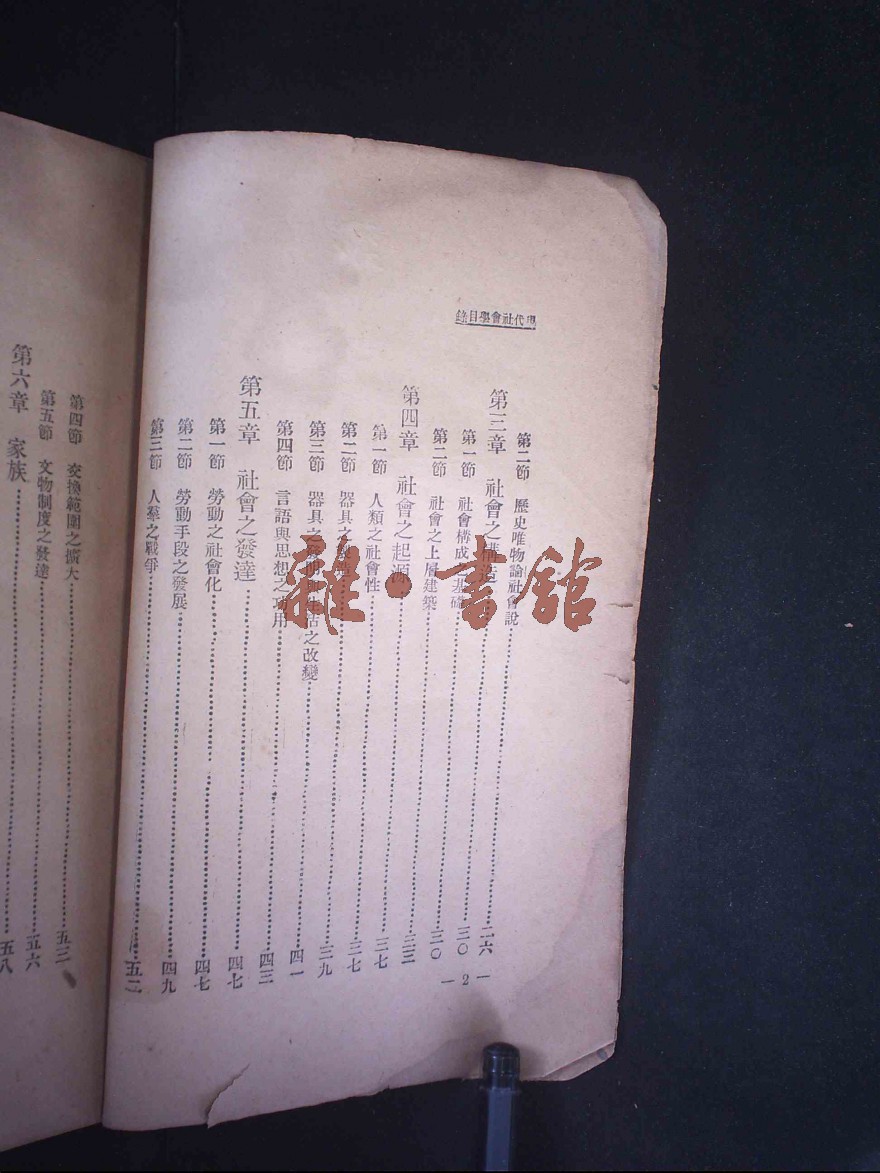 現代社會學目錄
第二節 歷史唯物論社會說……二六
第三章 社會之構造……三〇
第一節 社會構成之基礎……三〇
第二節 社會之上層建築……三三
第四章 社會之起源……三七
第一節 人類之社會性……三七
第二節 器具之……三九
第三節 器具之發明與生活之改變……四一
第四節 言語與思想之功用……四三
第五章 社會之發達……四七
第一節 勞動之社會化……四七
第二節 勞動手段之發展……四九
第三節 人羣之戰爭……五二
— 2 —
第四節 交換範圍之擴大……五三
第五節 文物制度之發達……五六
第六章 家族……五八
雜·書館